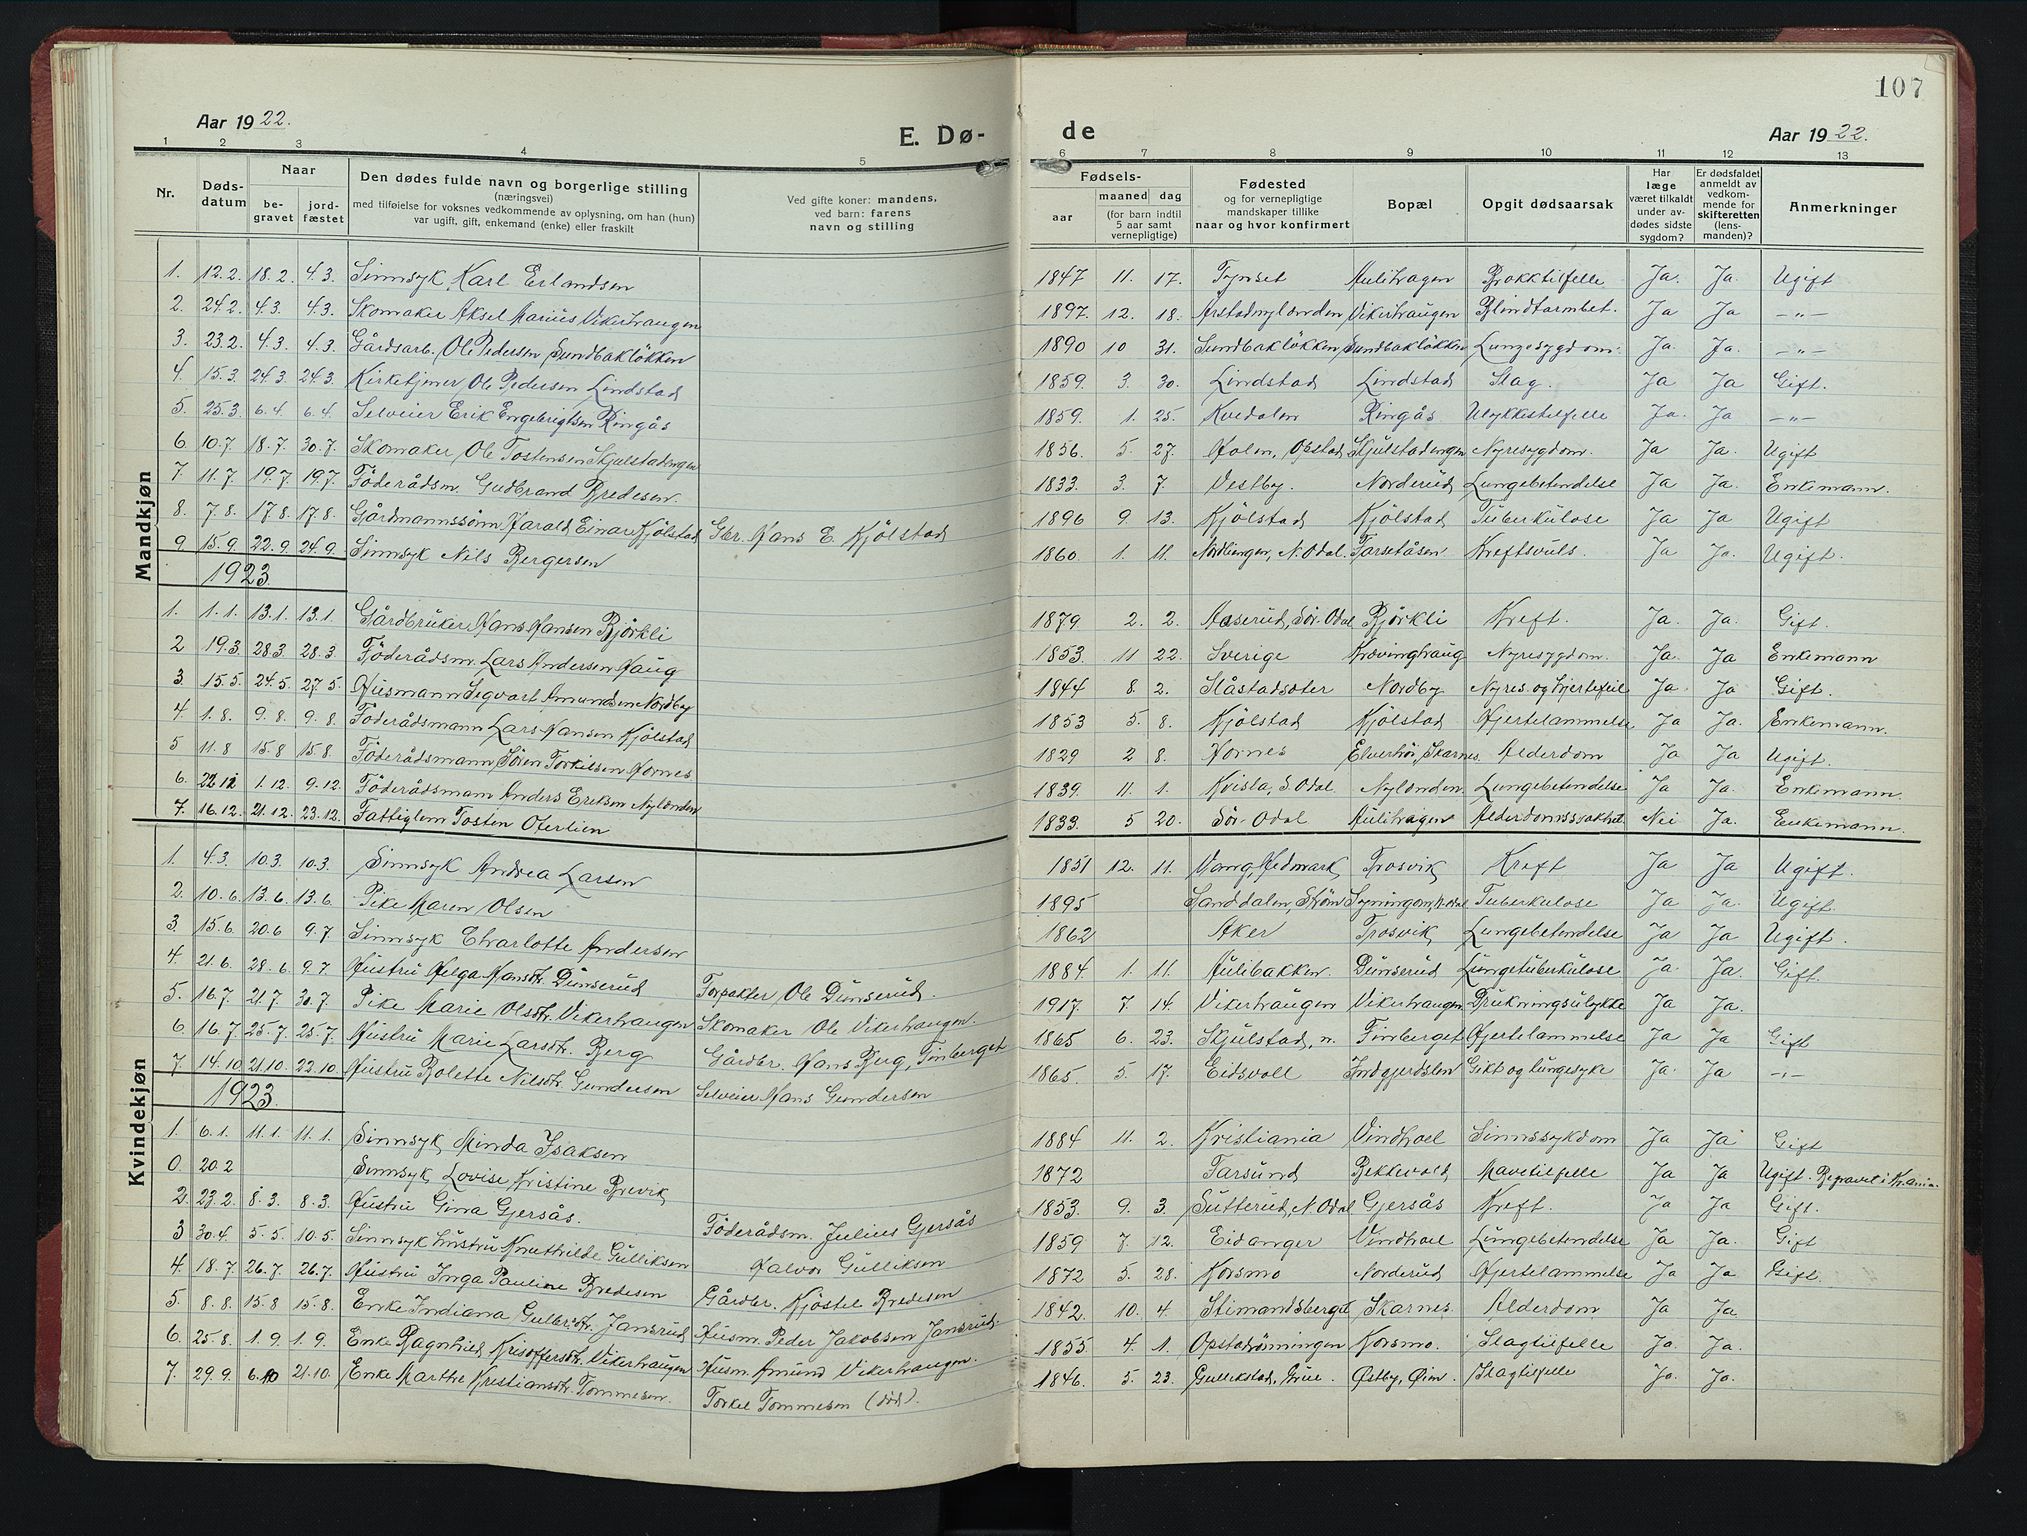 107
Aar 1922.
E. Dø-
de
Aar 1922.
1 2 3 4 5 6 7 8 9 10 11 12 13
Nr. Døds-datum Naar be-gravet jord-fæstet Den dødes fulde navn og borgerlige stilling (næringsvei) med tilføielse for voksnes vedkommende av oplysning, om han (hun) var ugift, gift, enkemand (enke) eller fraskilt Ved gifte koner: mandens, ved barn: farens navn og stilling Fødsels- aar maaned dag (for barn indtil 5 aar samt vernepligtige) Fødested og for vernepligtige mandskaper tillike naar og hvor konfirmert Bopæl Opgit dødsaarsak Har læge været tilkaldt under av-dødes sidste sygdom? Er dødsfaldet anmeldt av vedkom-mende for skifteretten (lens-manden)? Anmerkninger
Mandkjøn
1. 12.2. 18.2. 4.3. Sinnsyk Karl Erlandsen 1847 11. 17. Tynset Aulihagen Brokktilfelle Ja. Ja. Ugift
2. 24.2. 4.3. 4.3. Skomaker Aksel Marius Vikerhaugen 1897. 12. 18. Arstadnylenden Vikerhaugen Blindtarmbet. Ja Ja -"-
3. 23.2. 4.3. 4.3. Gårdsarb. Ole Pedersen Sundbakløkken 1890 10 31. Sundbakløkken Sundbakløkken Lungesygdom. Ja. Ja. -"-
4. 15.3. 24.3. 24.3. Kirketjener Ole Pedersen Lindstad 1859. 3. 30. Lindstad Lindstad Slag. Ja Ja Gift.
5. 25.3. 6.4. 6.4. Selveier Erik Engebrigtsen Ringås 1859. 1. 25. Kvedalen Ringås Ulykkestilfelle Ja. Ja -"-
6. 10.7. 18.7. 30.7. Skomaker Ole Tostensen Skjulstadengen 1856. 5. 27. Holen, Opstad Skjulstadengen Nyresygdom. Ja Ja Ugift
7 11.7. 19.7 19.7 Föderådsm. Gudbrand Bredesen. 1833. 3. 7. Vestby. Norderud Lungebetendelse Ja Ja. Enkemann.
8. 7.8. 17.8. 17.8. Gårdmannssønn Harald Einar Kjölstad Gbr. Hans E. Kjölstad 1896 9. 13. Kjölstad Kjölstad Tuberkulose Ja Ja Ugift
9. 15.9. 22.9. 24.9. Sinnsyk Nils Bergersen 1860. 1. 11. Nordliengen, N. Odal Farsetåsen Kreftsvuls. Ja Ja. Ugift.
1923.
1. 1.1. 13.1. 13.1. Gårdbruker Hans Hansen Björkli 1879 2. 2. Aaserud, Sör-Odal Björkli Kreft. Ja. Ja. Gift.
2 19.3. 28.3. 28.3. Föderådsm. Lars Andersen Haug 1853. 11 22. Sverige Krævinghaug Nyresygdom. Ja. Ja Enkemann
3. 15.5. 24.5. 27.5. Husmann Sigvart Amundsen Nordby 1844 8. 2. Slåstadseter Nordby Nyres. og hjertefeil Ja Ja Gift.
4. 1.8. 9.8. 9.8. Föderådsmann Lars Hansen Kjölstad 1853 5. 8. Kjölstad Kjölstad Hjertelammelse Ja Ja. Enkemann.
5 11.8 15.8 15.8. Föderådsmann Sören Torkelsen Hornes 1829 2 8. Hornes Elverhöi, Skarnes. Alderdom Ja Ja Ugift.
6. 22.12 1.12. 9.12. Föderådsmann Anders Eriksen Nylenden 1839. 11. 1. Kvisla, S. Odal. Nylenden. Lungebetendelse Ja Ja. Enkemann.
7. 16.12. 21.12. 23.12. Fattiglem Tosten Oferlien 1833. 5 20. Sör-Odal Aulihagen Alderdomssvakhet Nei Ja. Enkemann.
Kvindekjøn
1. 4.3. 10.3. 10.3. Sinnsyk Andrea Larsen 1851 12. 11. Vang, Hedmark Trosvik Kreft Ja Ja Ugift.
2. 10.6. 13.6. 13.6. Pike Maren Olsen 1895 Sanddalen, Ström Tuberkulose Ja Ja. Ugift.
3. 15.6. 20.6 9.7 Sinnsyk Charlotte Andersen 1862 Aker Trosvik Lungebetendelse Ja Ja Ugift.
4. 21.6. 28.6. 9.7. Hustru Helga Hansdtr. Dunserud Forpakter Ole Dunserud. 1884 1. 11. Aulibakken. Dunserud Lungetuberkulose Ja. Ja. Gift
5. 16.7. 21.7 30.7. Pike Marie Olsdtr. Vikerhaugen Skomaker Ole Vikerhaugen. 1917. 7 14. Vikerhaugen Vikerhaugen Drukningsulykke Ja Ja.
6. 16.7. 25.7. 25.7. Hustru Marie Larsdtr. Berg Gårdbr. Hans Berg, Finberget 1865 6. 23. Skjulstad, n. Finberget Hjertelammelse Ja Ja Gift
7. 14.10 21.10. 22.10. Hustru Bolette Nilsdtr. Gundersen Selveier Hans Gundersen 1865. 5. 17. Eidsvoll Indgjerdslen Gikt og lungesyke Ja. Ja -"-
1923.
1. 6.1. 11.1. 11.1. Sinnsyk Minda Isaksen 1884 11. 2. Kristiania Vindhoel Sinnssykdom Ja Ja Gift
0. 20.2 Sinnsyk Lovise Kristine Brevik 1872 Farsund Bekkevold Mavetilfelle Ja Ja Ugift. Begravet i Kr.ania.
2. 23.2. 8.3. 8.3. Hustru Gina Gjersås. Föderådsm. Julius Gjersås 1853. 9. 3. Sutterud, N. Odal Gjersås Kreft. Ja Ja. Gift.
3 30.4. 5.5. 10.5. Sinnsyk hustru Knuthilde Gulliksen Halvor Gulliksen 1859 7. 12. Eidanger Vindhoel Lungebetendelse Ja Ja. Gift
4. 18.7. 26.7. 26.7. Hustru Inga Pauline Bredesen Gårdbr. Kjöstel Bredesen 1872 5. 28. Korsmo Norderud Hjertelammelse Ja Ja Gift.
5. 8.8. 15.8 15.8. Enke Indiana Gulbr.dtr. Jansrud Husm. Peder Jakobsen Jansrud. 1842. 10. 4. Stimandsberget Skarnes. Alderdom Ja Ja
6. 25.8. 1.9. 1.9. Enke Ragnhild Krisoffersdtr. Vikerhaugen Husm. Amund Vikerhaugen. 1855 4. 1. Opstadrönningen Korsmo. Slagtilfelle Ja. Ja.
7. 29.9. 6.10 21.10. Enke Marthe Kristiansdtr. Tommesen. Torkel Tommesen (död). 1846. 5. 23. Gullikstad, Grue. Østby, Øien. Slagtilfelle Ja. Ja.